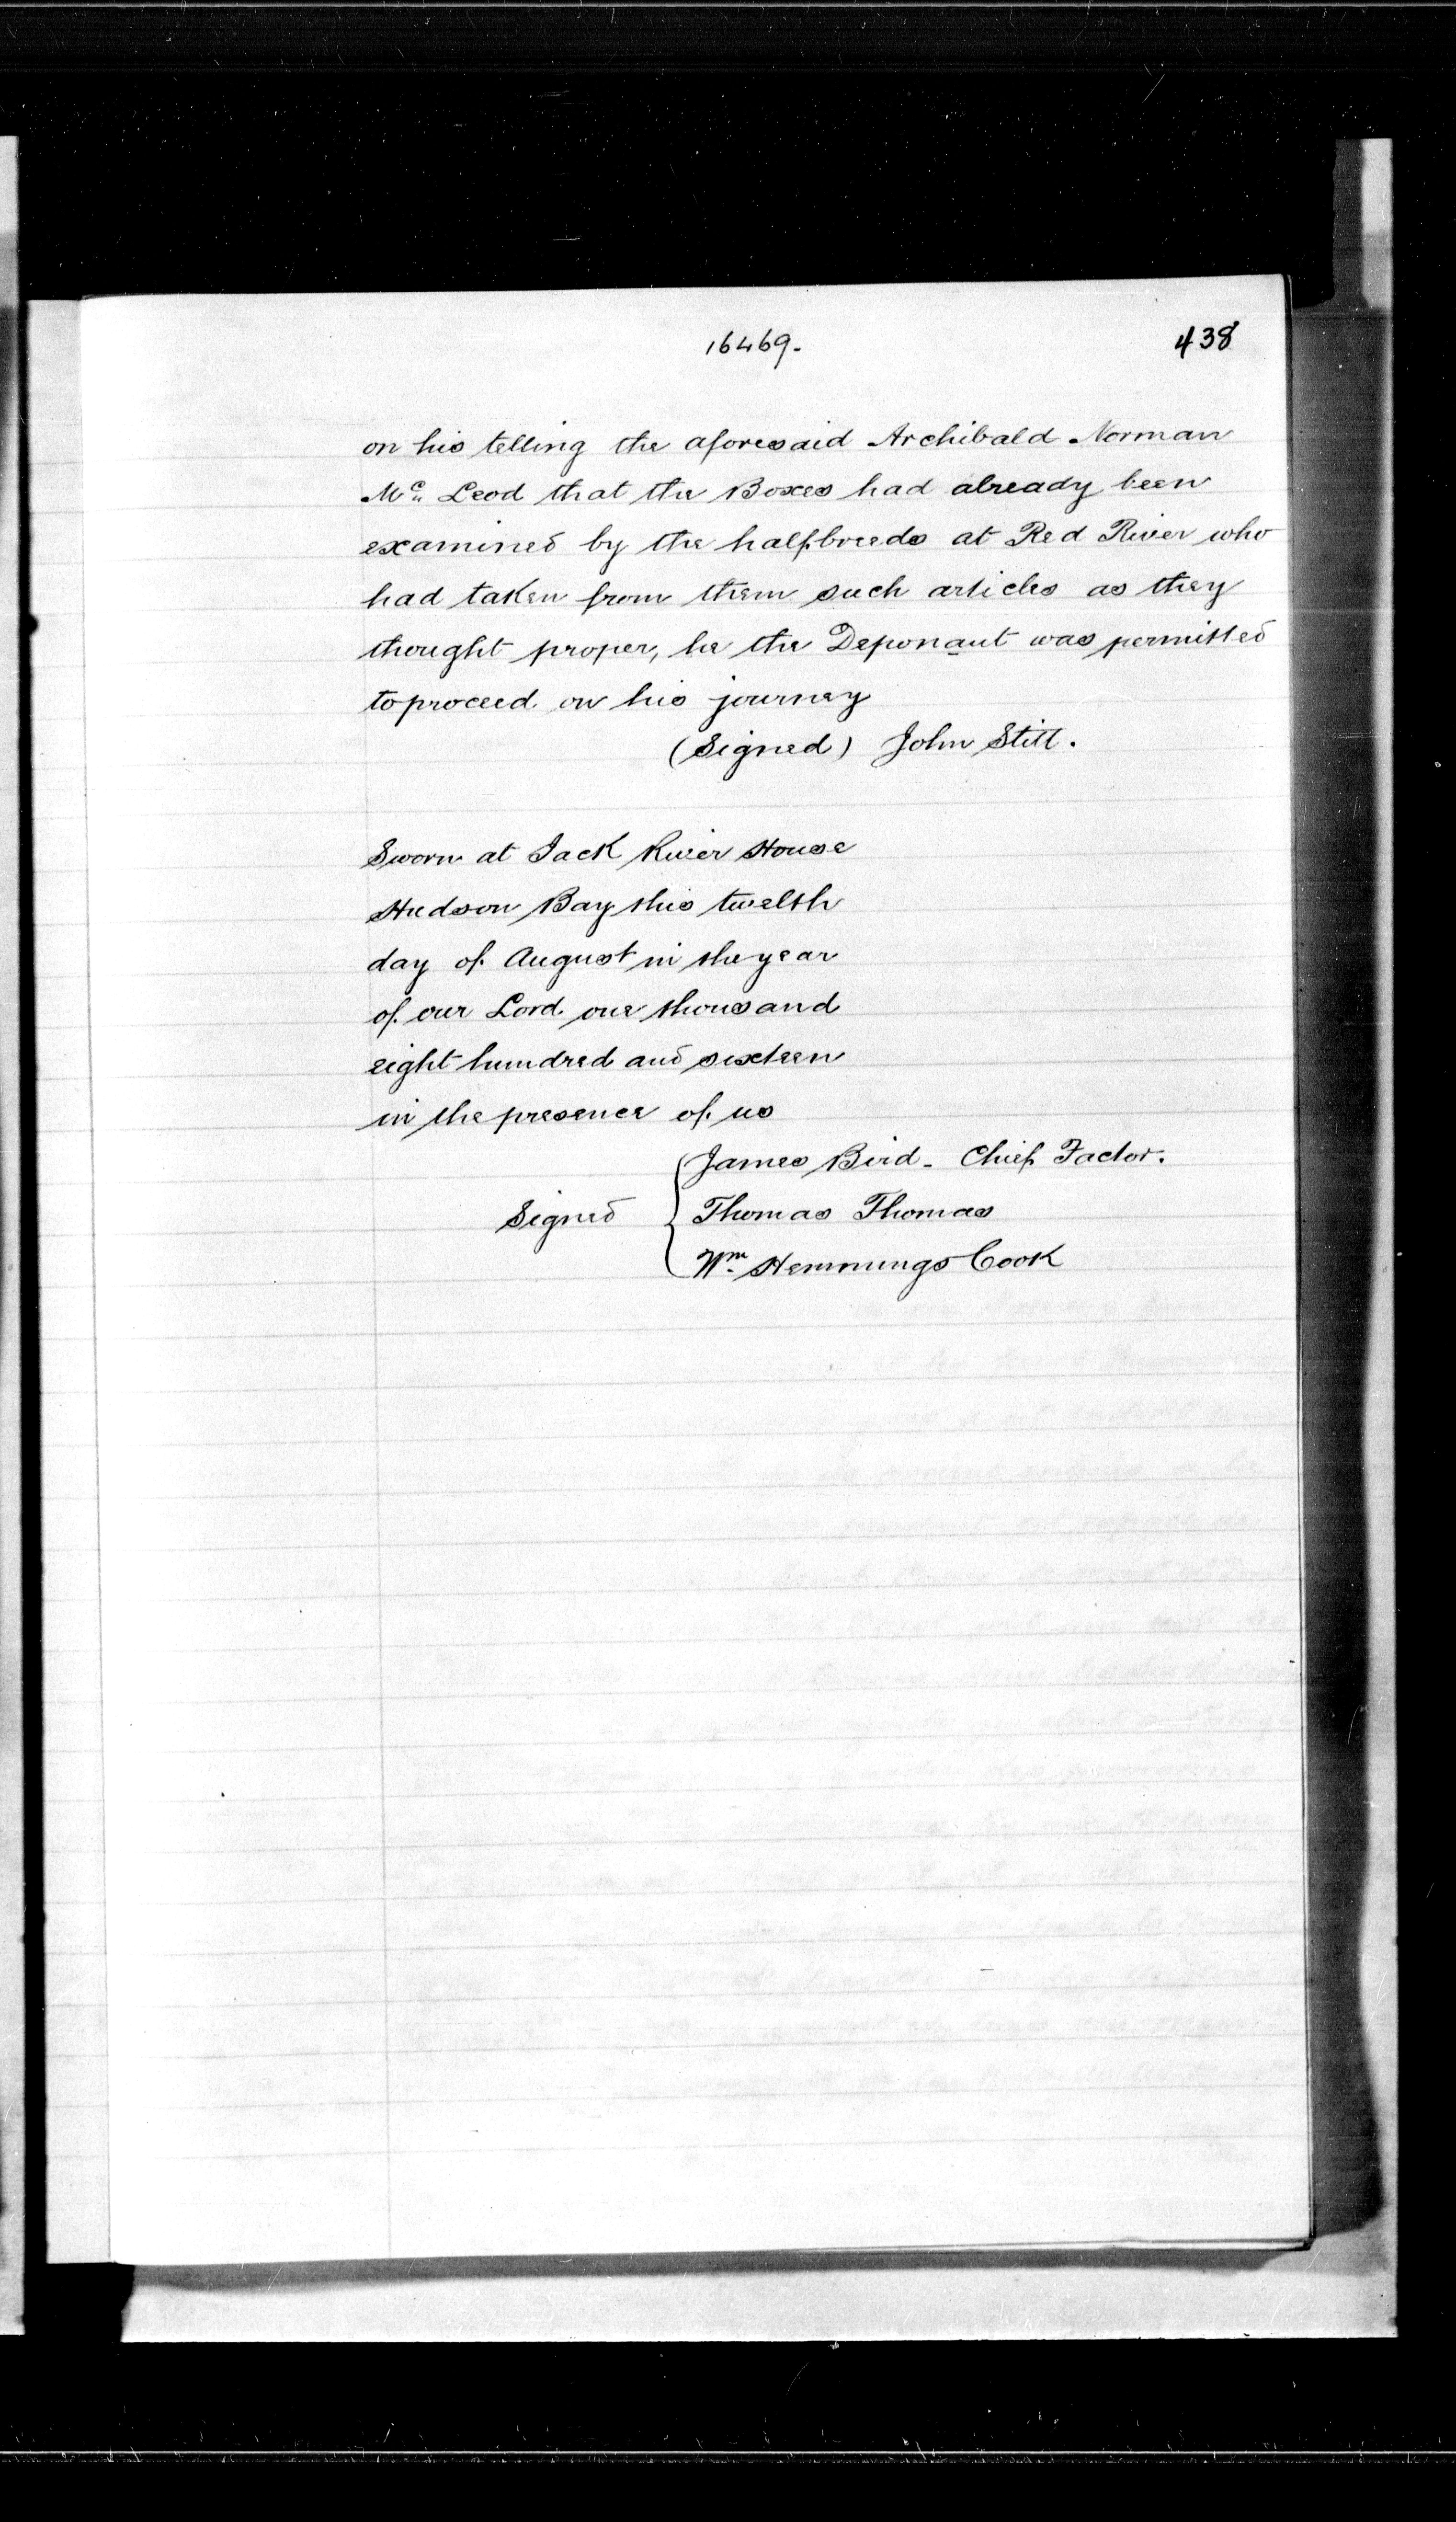 16469. 438
on his telling the aforesaid Archibald Norman
Mc. Leod that the Boxes had already been
examined by the halfbreeds at Red River who
had taken from them such articles as they
thought proper, he the Deponant was permitted
to proceed on his journey
(Signed) John Still.
Sworn at Jack River House
Hudson Bay this twelfth
day of August in the year
of our Lord one thousand
eight hundred and sixteen
in the presence of us
James Bird - Chief Factor.
Signed { Thomas Thomas
Wm. Hemmings Cook